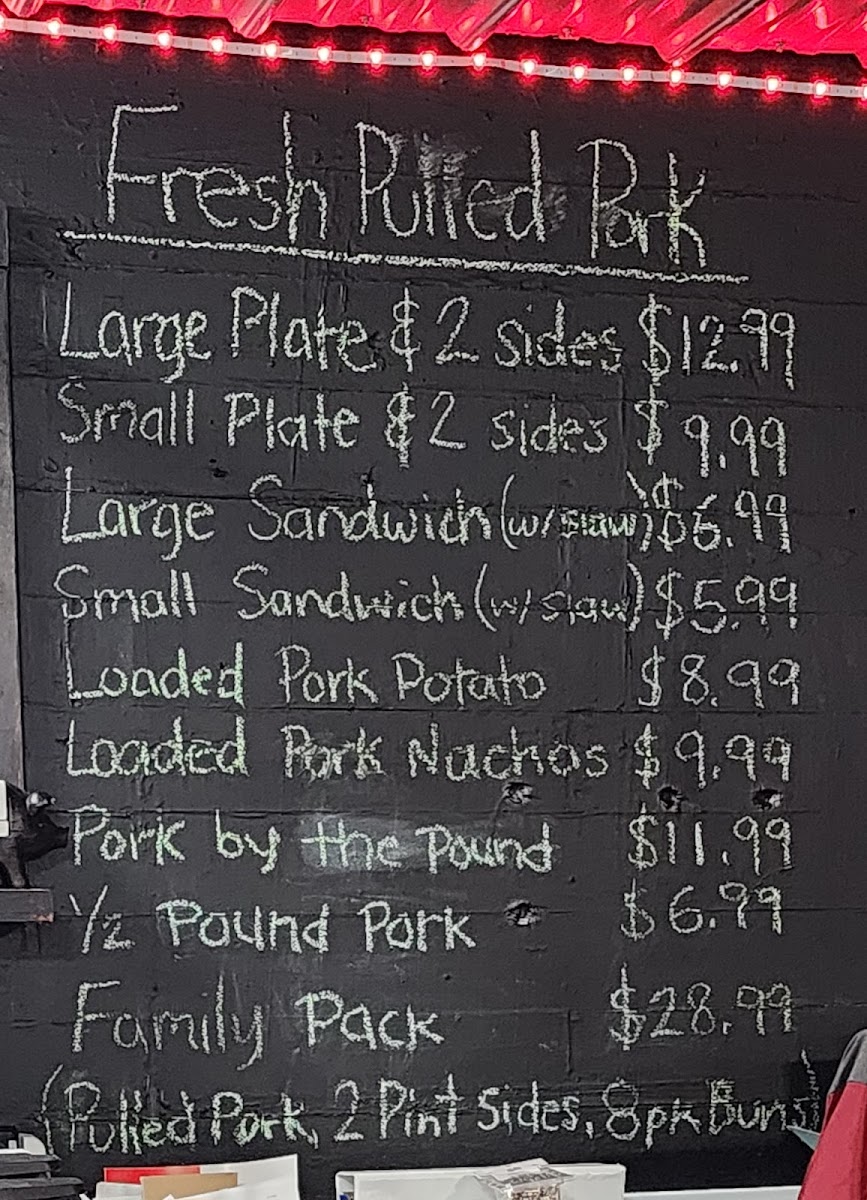 Fresh Pulled Pork
Large Plate & 2 sides $12.99
Small Plate & 2 sides $9.99
Large Sandwich (w/slaw) $6.99
Small Sandwich (w/slaw) $5.99
Loaded Pork Potato $8.99
Loaded Pork Nachos $9.99
Pork by the Pound $11.99
1/2 Pound Pork $6.99
Family Pack $28.99
(Pulled Pork, 2 Pint Sides, 8pk Buns